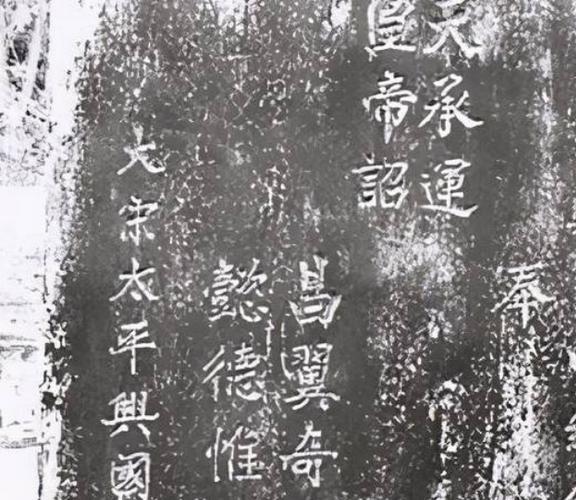 奉
天承運
皇帝詔
昌翼奇
懿德惟
大宋太平興國